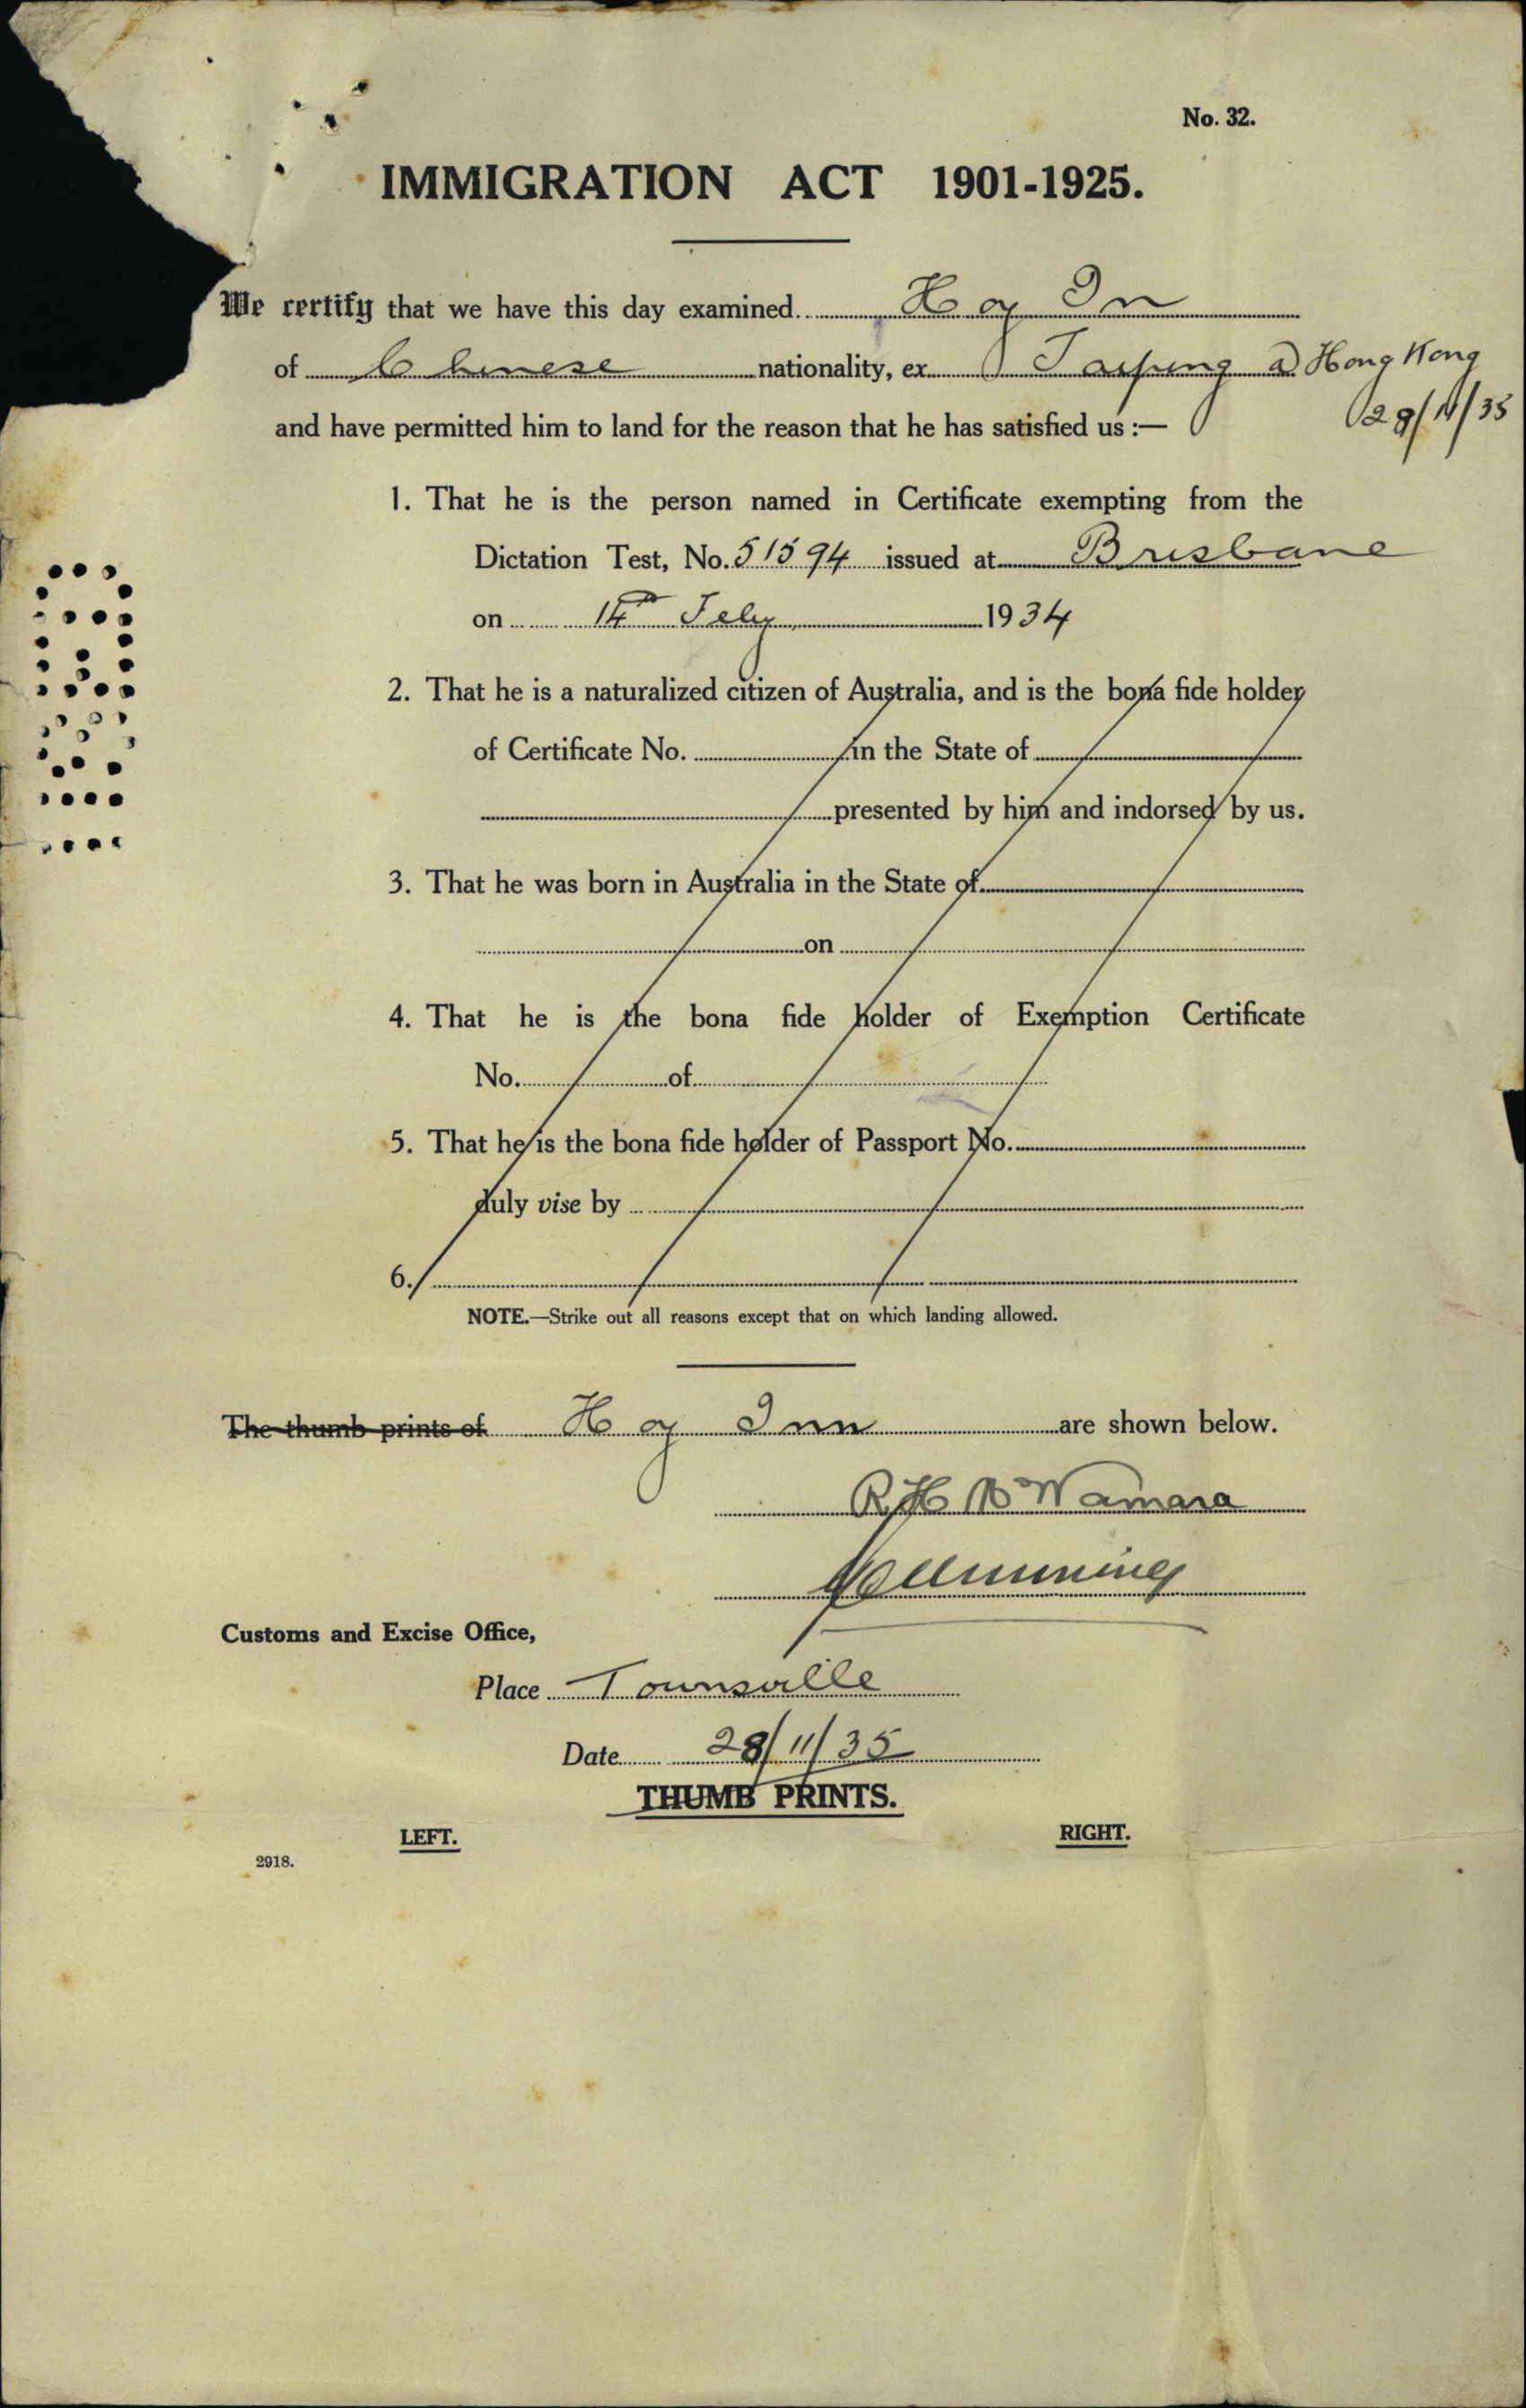 No. 32.
IMMIGRATION ACT 1901-1925.
We certify that we have this day examined Hoy In
of Chinese nationality, ex Taiping @ Hong Kong
28/11/35
and have permitted him to land for the reason that he has satisfied us :—
1. That he is the person named in Certificate exempting from the
Dictation Test, No. 51594 issued at Brisbane
on 14th Feby 1934
2. That he is a naturalized citizen of Australia, and is the bona fide holder
of Certificate No. in the State of
presented by him and indorsed by us.
3. That he was born in Australia in the State of
on
4. That he is the bona fide holder of Exemption Certificate
No. of
5. That he is the bona fide holder of Passport No.
duly vise by
6.
NOTE.—Strike out all reasons except that on which landing allowed.
The thumb prints of Hoy Inn are shown below.
R H McNamara
Cumming
Customs and Excise Office,
Place Townsville
Date 28/11/35
THUMB PRINTS.
LEFT. RIGHT.
2918.